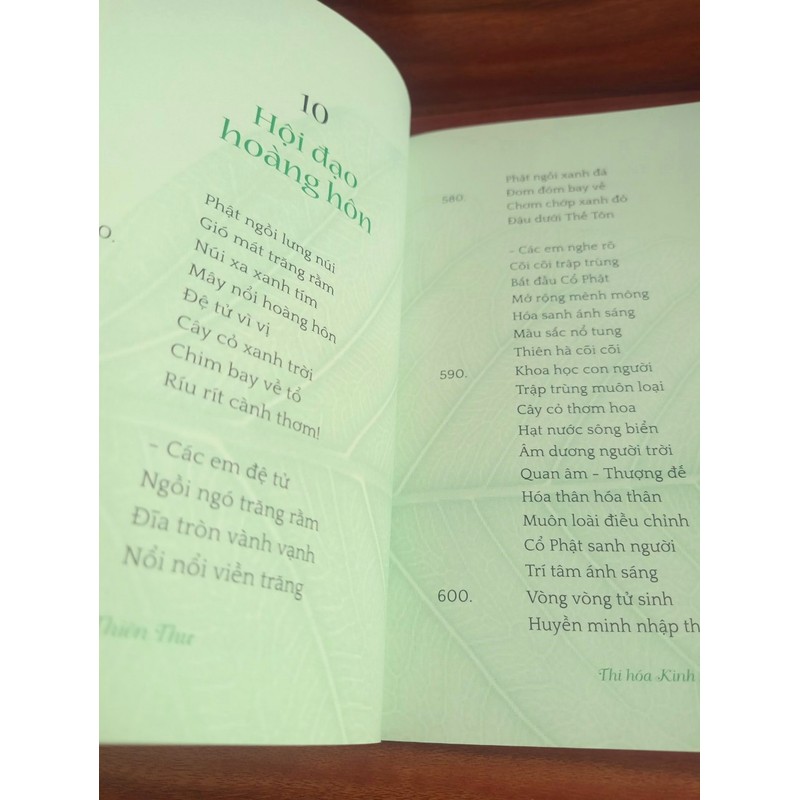 10
Hội đạo
hoàng hôn
Phật ngồi lưng núi
Gió mát trăng rằm
Núi xa xanh tím
Mây nổi hoàng hôn
Đệ tử vì vị
Cây cỏ xanh trời
Chim bay về tổ
Ríu rít cành thơm!
– Các em đệ tử
Ngồi ngó trăng rằm
Đĩa tròn vành vạnh
Nổi nổi viền trăng
Thiên Thư
Phật ngồi xanh đá
580. Đom đóm bay về
Chơm chớp xanh đỏ
Đậu dưới Thế Tôn
– Các em nghe rõ
Cõi cõi trập trùng
Bắt đầu Cổ Phật
Mở rộng mênh mông
Hóa sanh ánh sáng
Màu sắc nổ tung
Thiên hà cõi cõi
590. Khoa học con người
Trập trùng muôn loại
Cây cỏ thơm hoa
Hạt nước sông biển
Âm dương người trời
Quan âm – Thượng đế
Hóa thân hóa thân
Muôn loài điều chỉnh
Cổ Phật sanh người
Trí tâm ánh sáng
600. Vòng vòng tử sinh
Huyền minh nhập th
Thi hóa Kinh